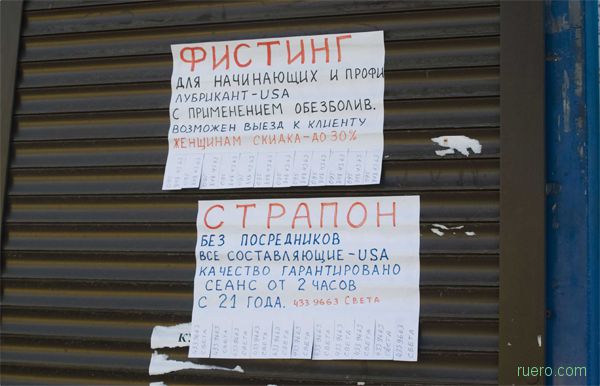 ФИСТИНГ
ДЛЯ НАЧИНАЮЩИХ И ПРОФИ
ЛУБРИКАНТ-USA
С ПРИМЕНЕНИЕМ ОБЕЗБОЛИВ.
ВОЗМОЖЕН ВЫЕЗД К КЛИЕНТУ
ЖЕНЩИНАМ СКИДКА-ДО 30%
СТРАПОН
БЕЗ ПОСРЕДНИКОВ
ВСЕ СОСТАВЛЯЮЩИЕ-USA
КАЧЕСТВО ГАРАНТИРОВАНО
СЕАНС ОТ 2 ЧАСОВ
С 21 ГОДА. 433 9663 СВЕТА
ruero.com